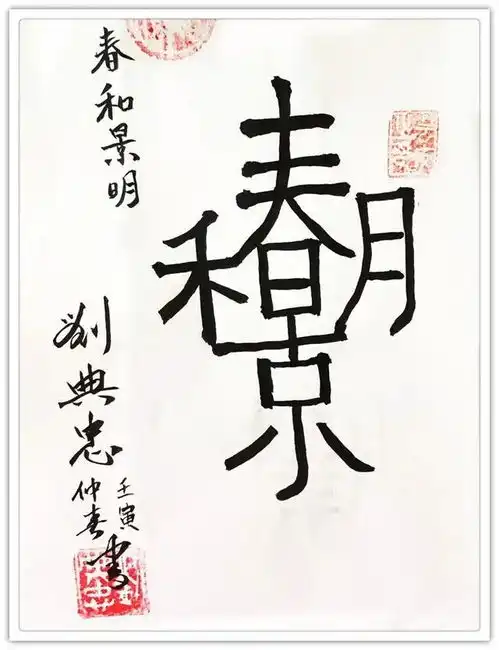 春和景明
春和景明
劉典忠
壬寅
仲春書